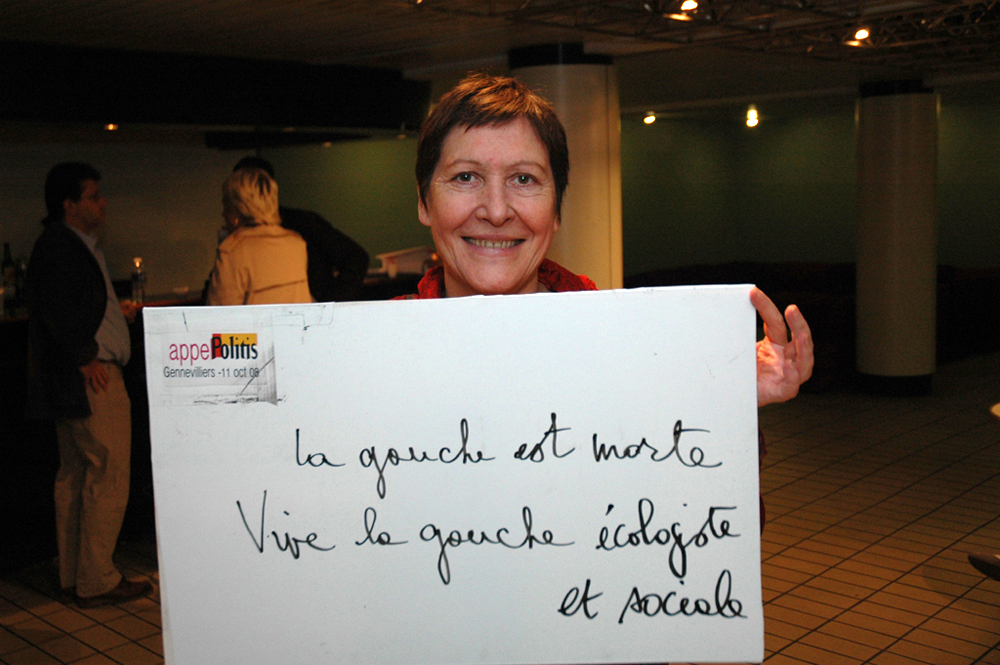 appelPolitis
Gennevilliers -11 oct 08
la gauche est morte
Vive la gauche écologiste
et sociale